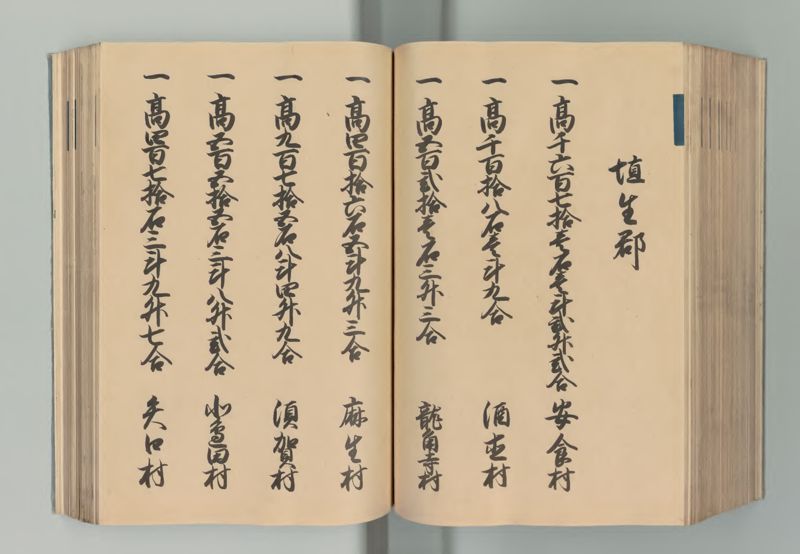 埴生郡
一高千六百七拾壱石壱斗弐升弐合 安食村
一高千百拾八石壱斗九合 酒直村
一高五百弐拾壱石三升三合 龍角寺村
一高四百拾六石五斗九升三合 麻生村
一高九百七拾五石八斗四升九合 須賀村
一高五百五拾五石三斗八升弐合 北邉田村
一高四百七拾石三斗九升七合 矢口村